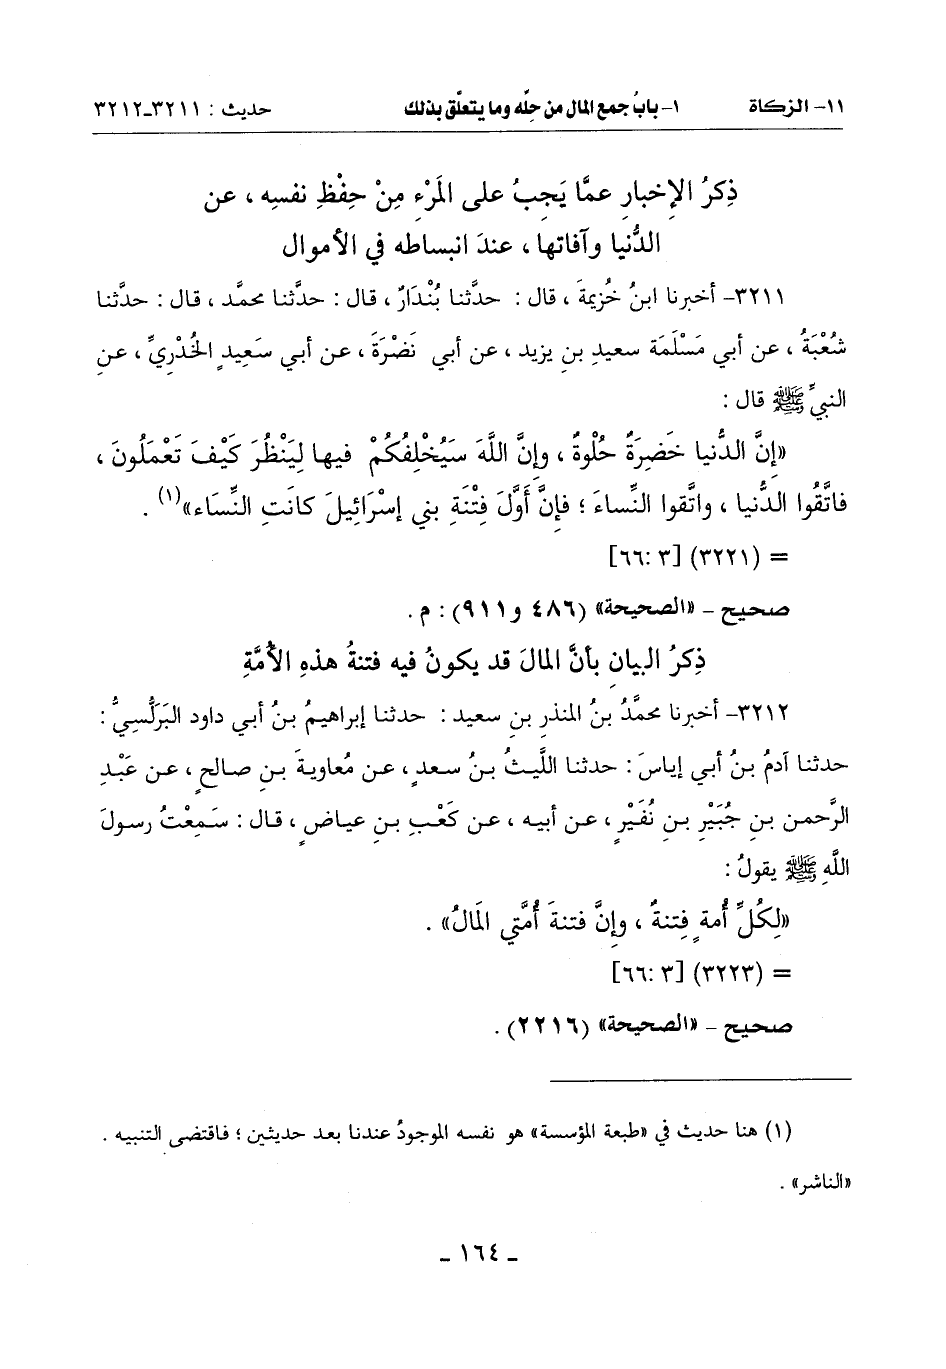 ١١- الزكاة ١- بابُ جمع المال من حلّه وما يتعلّق بذلك حديث : ٣٢١١-٣٢١٢
ذِكرُ الإخبارِ عمَّا يَجِبُ على المَرْءِ مِنْ حِفْظِ نفسِه ، عن
الدُّنيا وآفاتها ، عندَ انبساطه في الأموال
٣٢١١- أخبرنا ابنُ خُزيمةَ ، قال : حدَّثنا بُنْدَارٌ ، قال : حدَّثنا محمَّد ، قال : حدَّثنا
شُعْبَةُ ، عن أبي مَسْلَمَة سعيدِ بنِ يزيد ، عن أبي نَضْرَةَ ، عن أبي سَعِيدٍ الخُدْرِيِّ ، عنِ
النبيِّ ﷺ قال :
«إنَّ الدُّنيا خَضِرَةٌ حُلْوةٌ ، وإنَّ اللَّهَ سَيُخْلِفُكُمْ فيها لِيَنْظُرَ كَيْفَ تَعْمَلُونَ ،
فاتَّقُوا الدُّنيا ، واتَّقوا النِّساءَ ؛ فإنَّ أَوَّلَ فِتْنَةِ بني إسْرَائِيلَ كانَتِ النِّسَاء»(١) .
= (٣٢٢١) [٣ :٦٦]
صحيح - «الصحيحة» (٤٨٦ و٩١١) : م .
ذِكرُ البيانِ بأنَّ المالَ قد يكونُ فيه فتنةُ هذهِ الأُمَّةِ
٣٢١٢- أخبرنا محمَّدُ بنُ المنذرِ بنِ سعيد : حدثنا إبراهيمُ بنُ أبي داود البَرَلُّسِيُّ :
حدثنا آدمُ بنُ أبي إياسَ : حدثنا اللَّيثُ بنُ سعدٍ ، عن مُعاويةَ بنِ صالحٍ ، عن عَبْدِ
الرَّحمنِ بنِ جُبَيْرِ بنِ نُفَيْرٍ ، عن أبيه ، عن كَعْبِ بنِ عياضٍ ، قال : سَمِعْتُ رسولَ
اللَّهِ ﷺ يقولُ :
«لِكُلِّ أُمةٍ فِتنةٌ ، وإنَّ فتنةَ أُمَّتي المَالُ» .
= (٣٢٢٣) [٣ :٦٦]
صحيح - «الصحيحة» (٢٢١٦) .
(١) هنا حديث في «طبعة المؤسسة» هو نفسه الموجودُ عندنا بعد حديثين ؛ فاقتضى التنبيه .
«الناشر» .
- ١٦٤ -